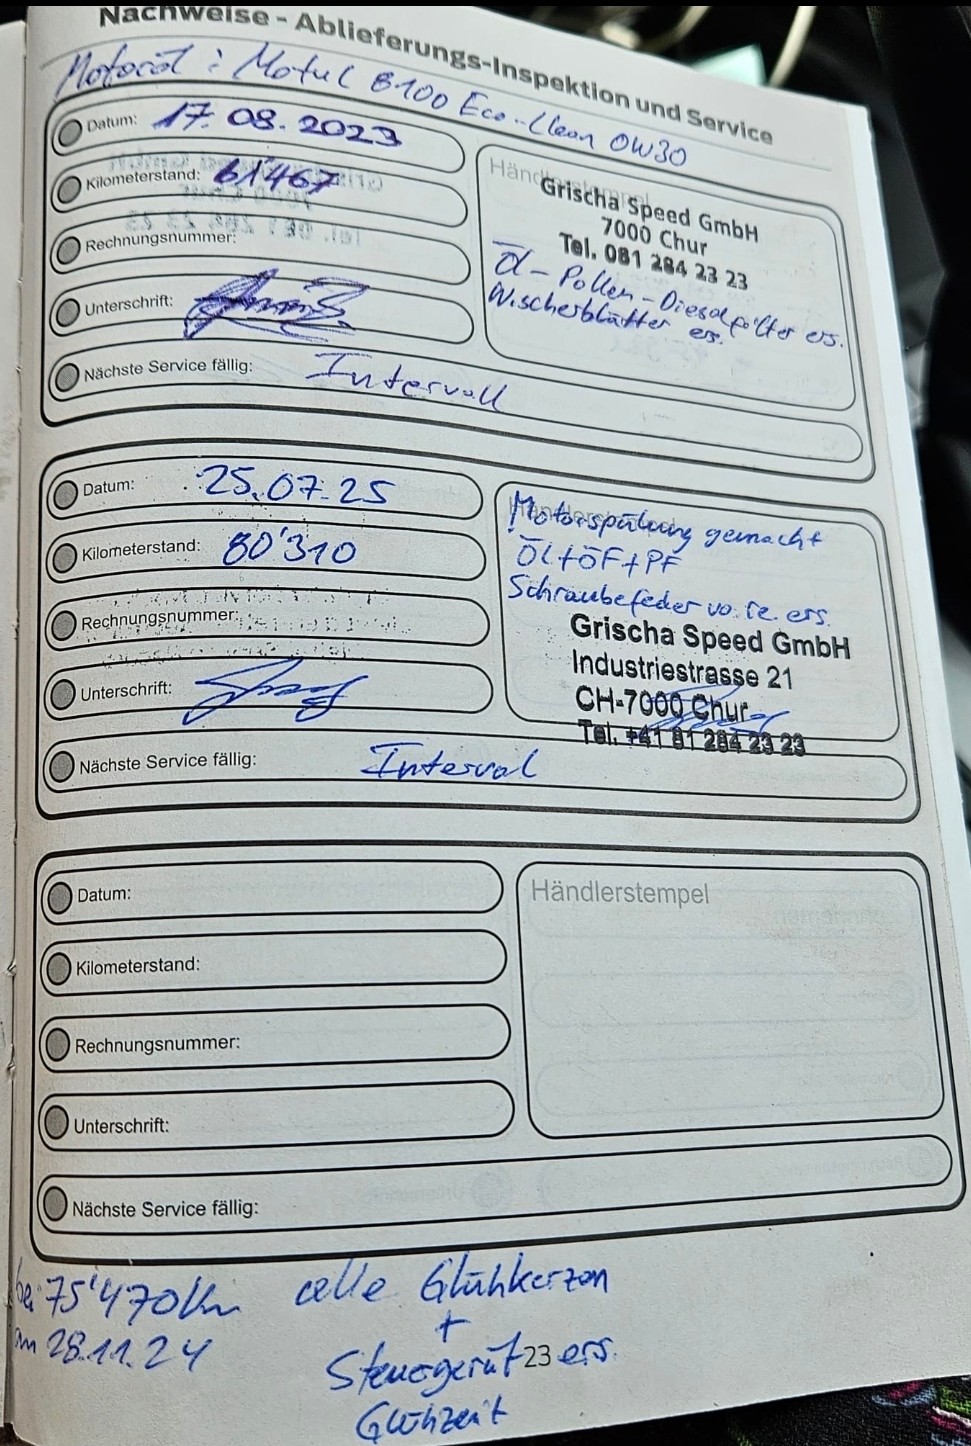 Nachweise - Ablieferungs-Inspektion und Service
Motoröl : Motul 8100 Eco-Clean 0W30
Datum: 17.08.2023
Kilometerstand: 61'467
Rechnungsnummer:
Unterschrift:
Nächste Service fällig: Intervall
Händlerstempel
Grischa Speed GmbH
7000 Chur
Tel. 081 284 23 23
Öl - Pollen - Dieselfilter ers.
Wischerblätter ers.
Datum: 25.07.25
Kilometerstand: 80'310
Rechnungsnummer:
Unterschrift:
Nächste Service fällig: Interval
Händlerstempel
Motorspülung gemacht
ÖL+ÖF+PF
Schraubefeder vo. re. ers.
Grischa Speed GmbH
Industriestrasse 21
CH-7000 Chur
Tel. +41 81 284 23 23
Datum:
Kilometerstand:
Rechnungsnummer:
Unterschrift:
Nächste Service fällig:
Händlerstempel
bei 75'470Km alle Glühkerzen
+
am 28.11.24 Steuergerät ers.
Glühzeit
23